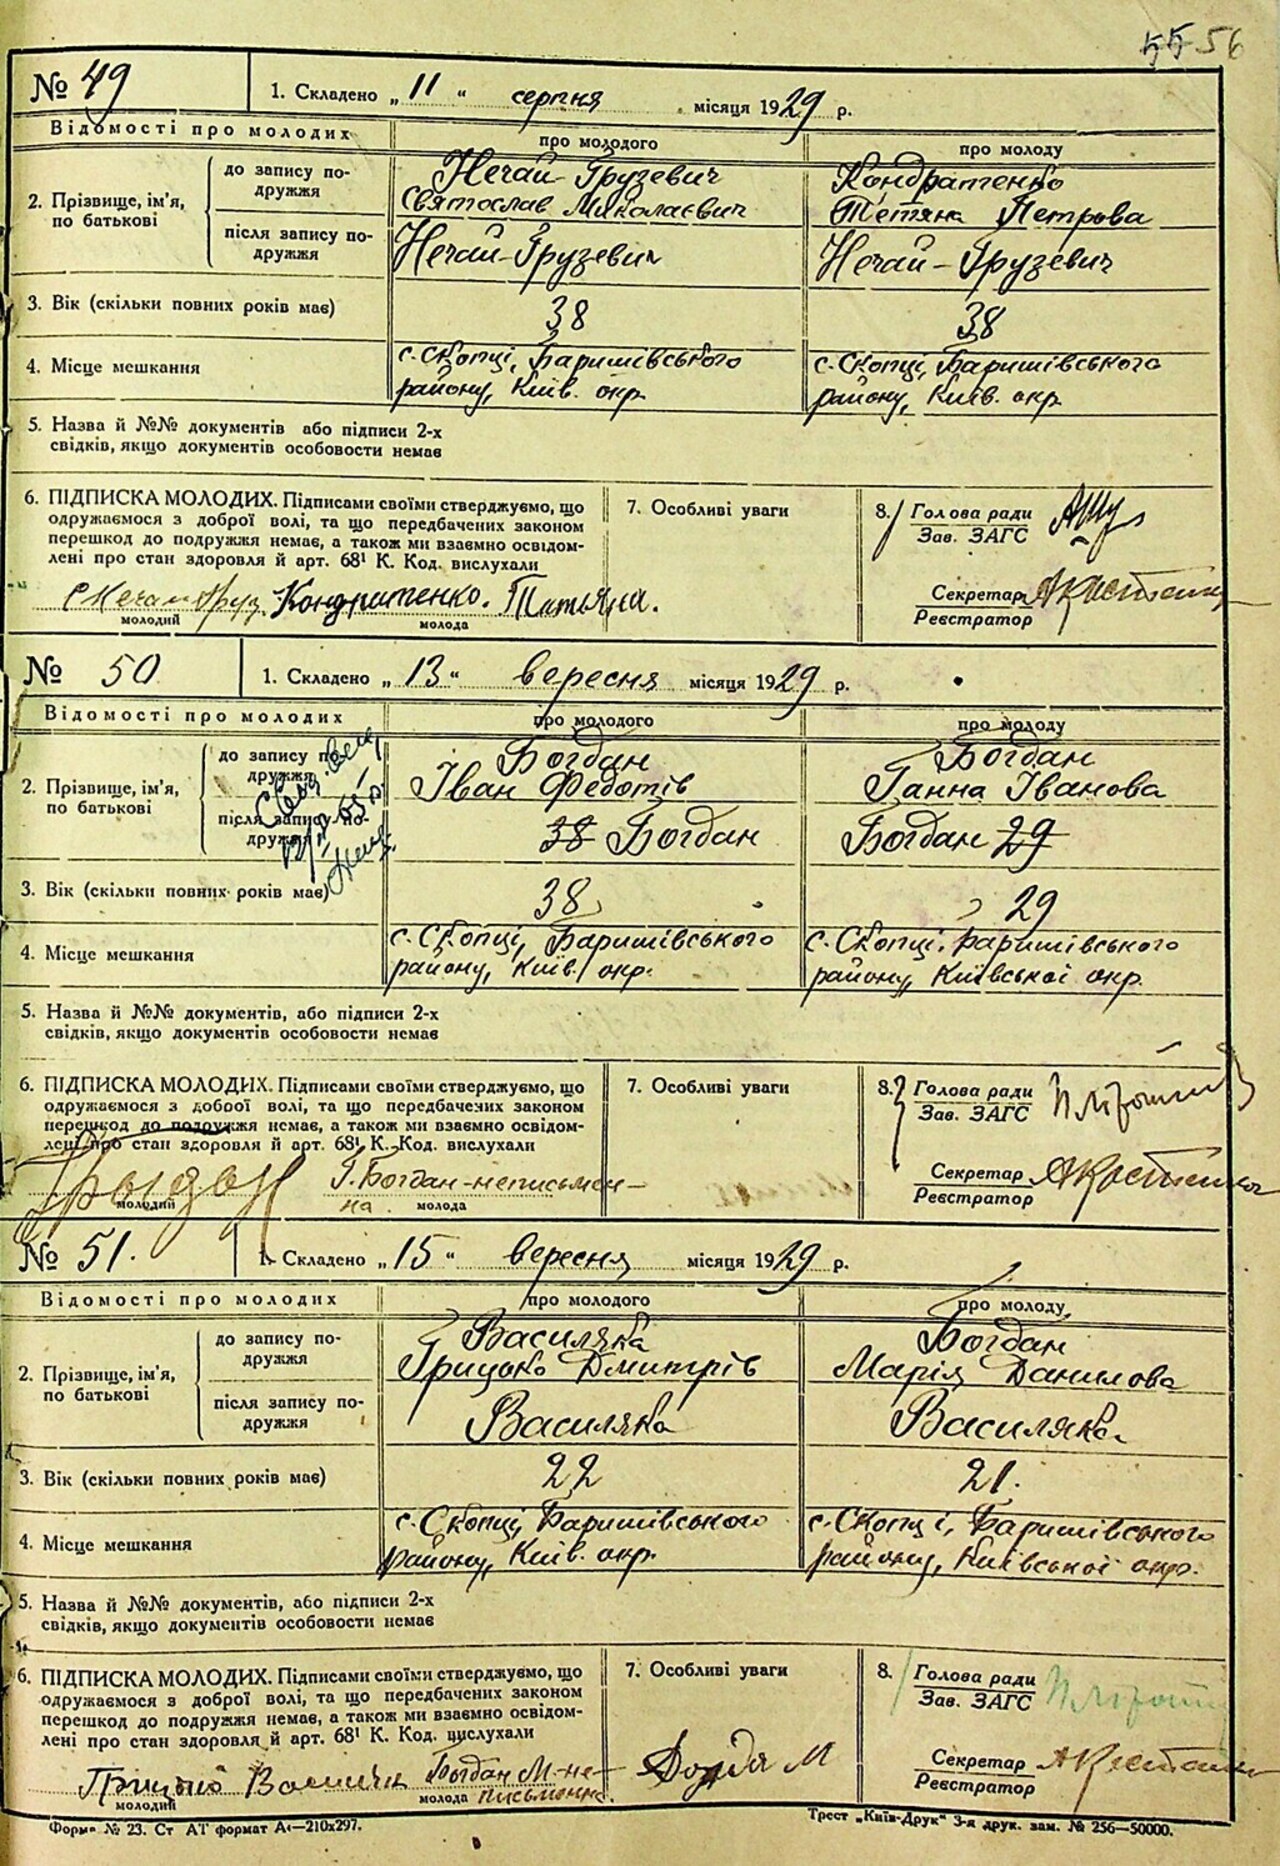 55 56
№ 49 1. Складено „ 11 “ серпня місяця 1929 р.
Відомості про молодих про молодого про молоду
2. Прізвище, ім'я, по батькові
до запису по-
дружжя
Нечай-Грузевич
Святослав Миколаєвич
Кондратенко
Тетяна Петрова
після запису по-
дружжя
Нечай-Грузевич Нечай-Грузевич
3. Вік (скільки повних років має) 38 38
4. Місце мешкання
с. Скопці, Баришівського
району, Київ. окр.
с. Скопці, Баришівського
району, Київ. окр.
5. Назва й №№ документів або підписи 2-х
свідків, якщо документів особовости немає
6. ПІДПИСКА МОЛОДИХ. Підписами своїми стверджуємо, що
одружаємося з доброї волі, та що передбачених законом
перешкод до подружжя немає, а також ми взаємно освідом-
лені про стан здоровля й арт. 68¹ К. Код. вислухали
Кондратенко. Татьяна.
молодий молода
7. Особливі уваги
8. Голова ради
Зав. ЗАГС
Секретар А Костенко
Реєстратор
№ 50 1. Складено „ 13 “ вересня місяця 1929 р.
Відомості про молодих про молодого про молоду
2. Прізвище, ім'я,
по батькові
до запису по-
дружжя
Богдан
Іван Федотів
Богдан
Ганна Іванова
після запису по-
дружжя
38 Богдан Богдан 29
3. Вік (скільки повних років має) 38 29
4. Місце мешкання
с. Скопці, Баришівського
району, Київ. окр.
с. Скопці, Баришівського
району, Київської окр.
5. Назва й №№ документів, або підписи 2-х
свідків, якщо документів особовости немає
6. ПІДПИСКА МОЛОДИХ. Підписами своїми стверджуємо, що
одружаємося з доброї волі, та що передбачених законом
перешкод до подружжя немає, а також ми взаємно освідом-
лені про стан здоровля й арт. 68¹ К. Код. вислухали
Г. Богдан-неписьмен-
на.
молодий молода
7. Особливі уваги
8. Голова ради
Зав. ЗАГС
Секретар А Костенко
Реєстратор
№ 51. 1. Складено „ 15 “ вересня місяця 1929 р.
Відомості про молодих про молодого про молоду
2. Прізвище, ім'я,
по батькові
до запису по-
дружжя
Василяка
Грицько Дмитрів
Богдан
Марія Данилова
після запису по-
дружжя
Василяка Василяка
3. Вік (скільки повних років має) 22 21.
4. Місце мешкання
с. Скопці, Баришівського
району, Київ. окр.
с. Скопці, Баришівського
району, Київської окр.
5. Назва й №№ документів, або підписи 2-х
свідків, якщо документів особовости немає
6. ПІДПИСКА МОЛОДИХ. Підписами своїми стверджуємо, що
одружаємося з доброї волі, та що передбачених законом
перешкод до подружжя немає, а також ми взаємно освідом-
лені про стан здоровля й арт. 68¹ К. Код. вислухали
Грицько Богдан М-не-
письменна.
молодий молода
7. Особливі уваги
8. Голова ради
Зав. ЗАГС
Секретар А Костенко
Реєстратор
Форма № 23. Ст АТ формат А4—210x297. Трест „Київ-Друк“ 3-я друк. зам. № 256—50000.